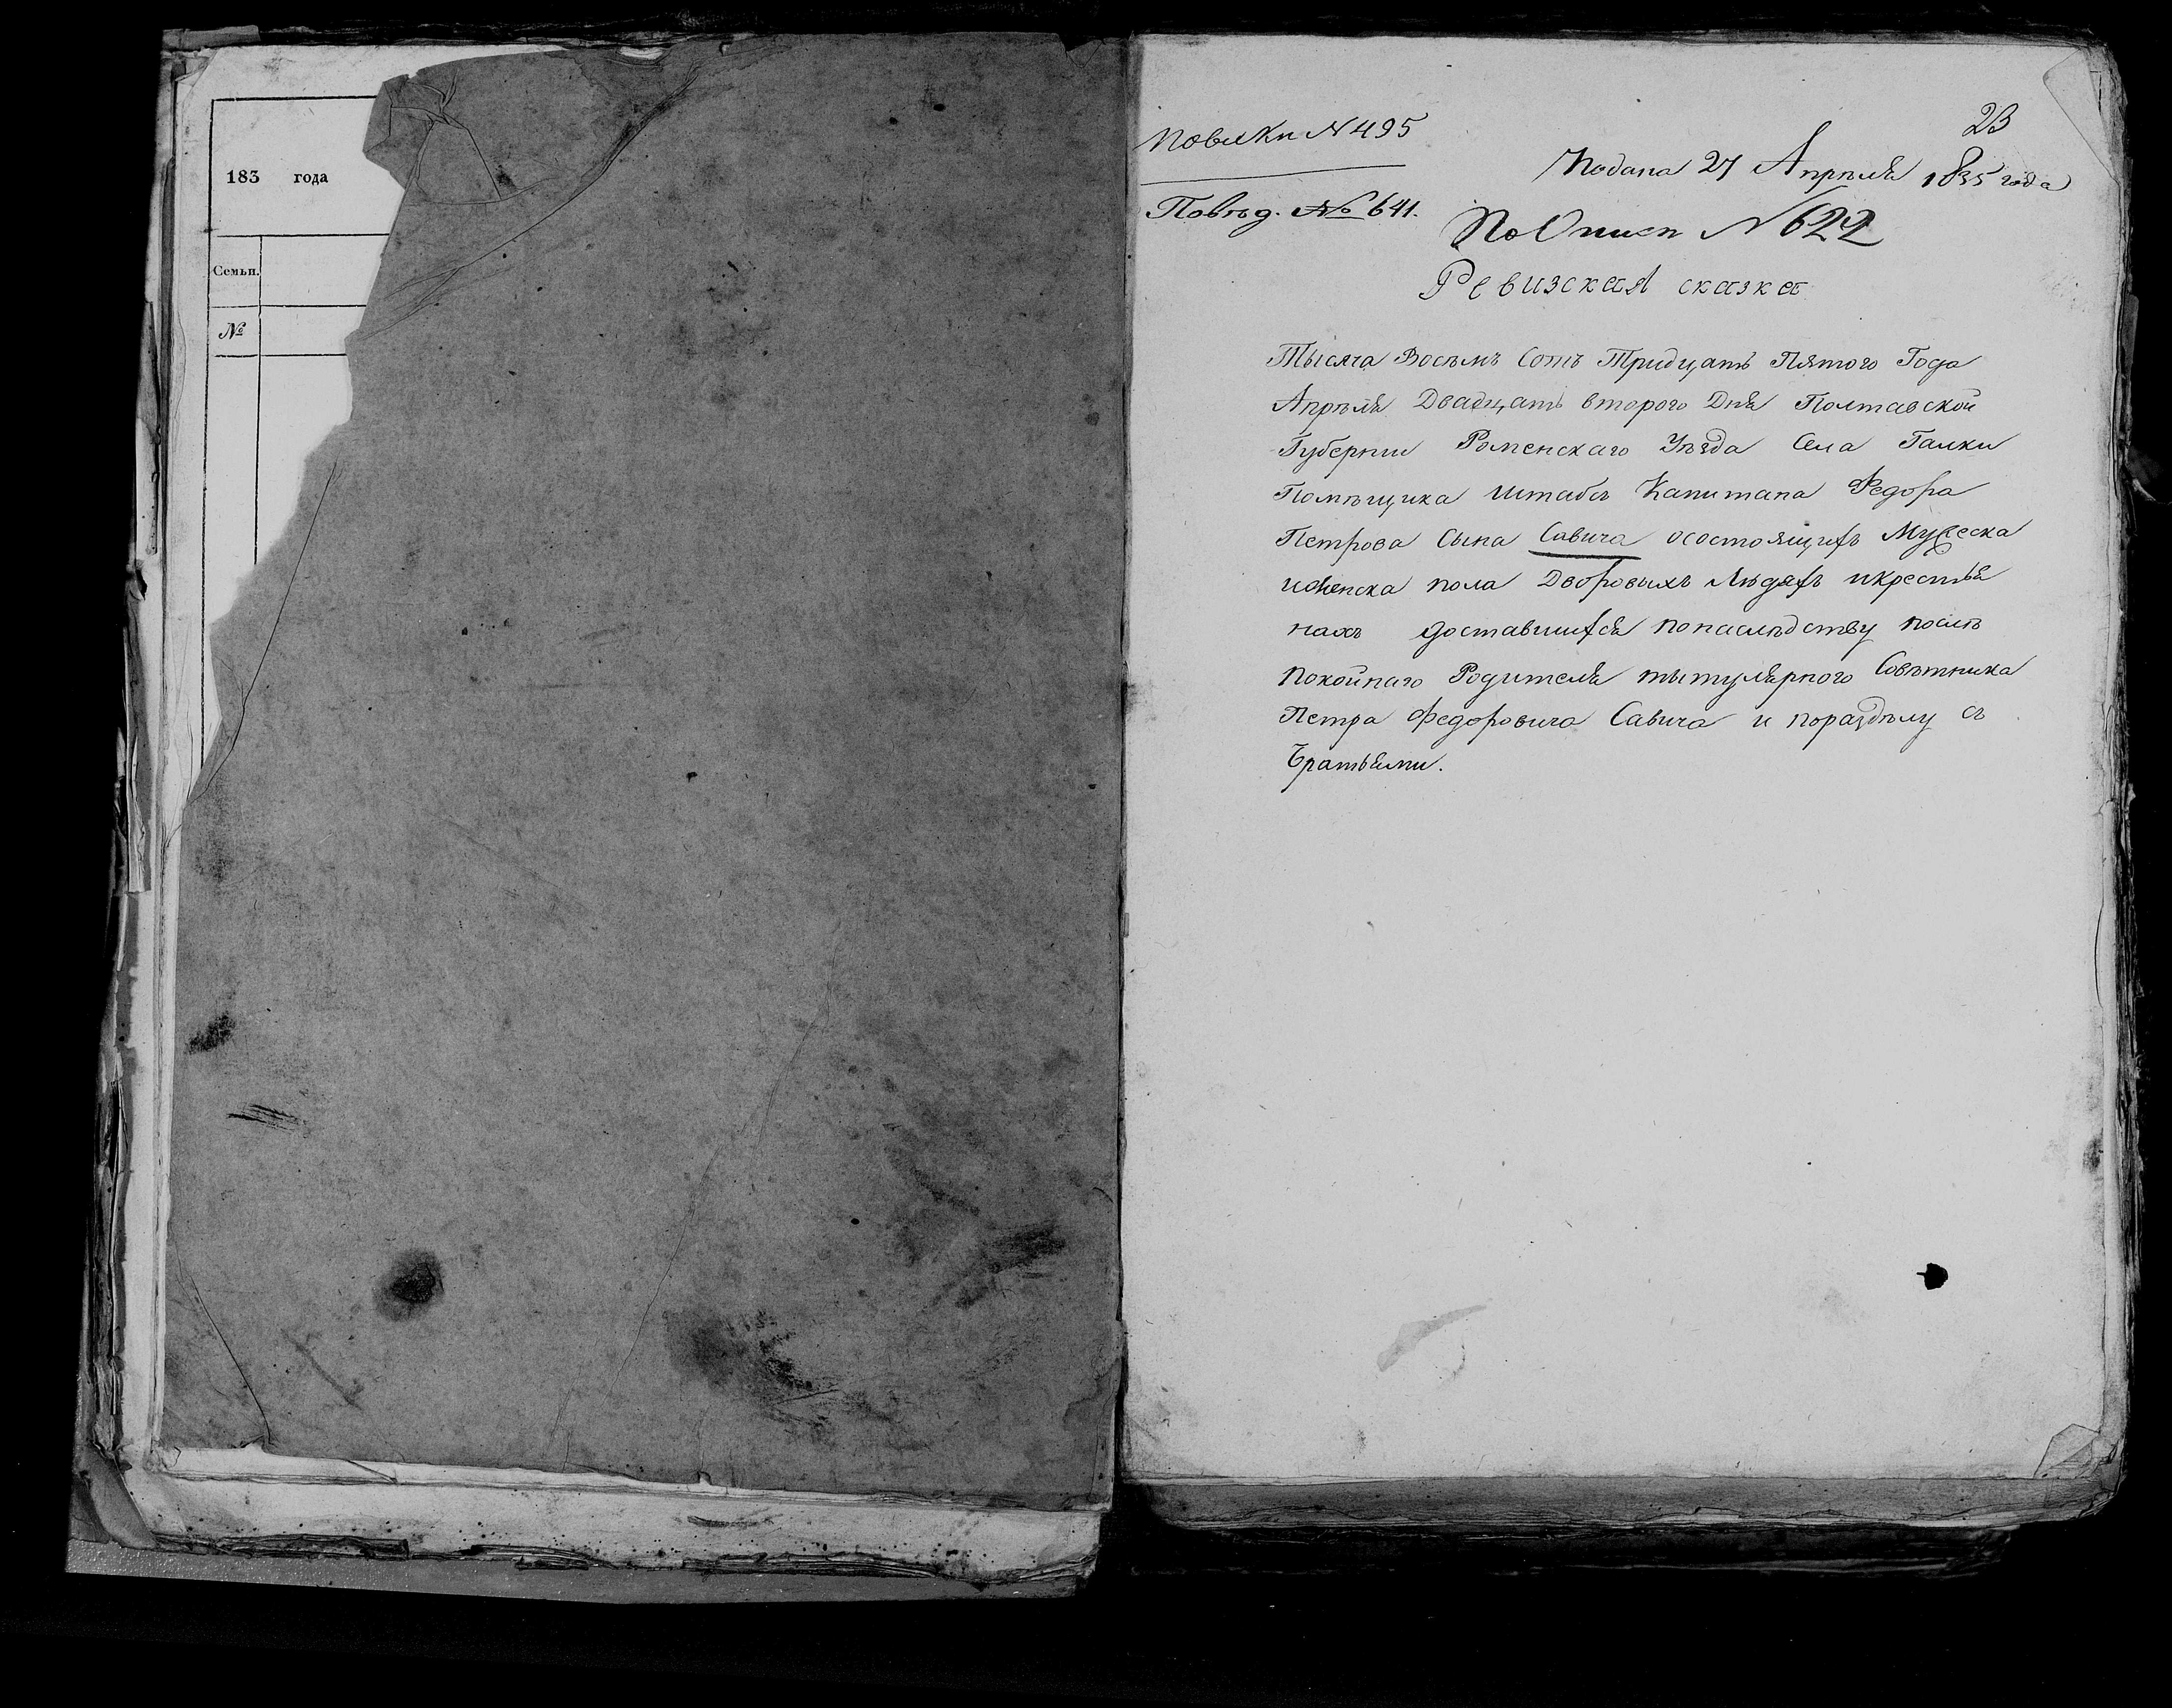 183 года
Семьи.
№
23
Повики N 495
Подана 27 Апреля 1835 года
Повѣд. № 641.
По Описи N 622
Ревизская сказка
Тысяча Восѣмъ Сотъ Тридцать Пятого Года
Апрѣля Двадцать второго Дня Полтавской
Губернии Роменскаго Уѣзда Села Галки
Помѣщика Штабсъ Капитана Федора
Петрова Сына Савича осостоящихъ Мужеска
иженска пола Дворовыхъ Людяхъ икрестья
нахъ доставшихся понаслѣдству послѣ
покойнаго Родителя тытулярного Совѣтника
Петра Федоровича Савича и поразделу съ
Братьями.